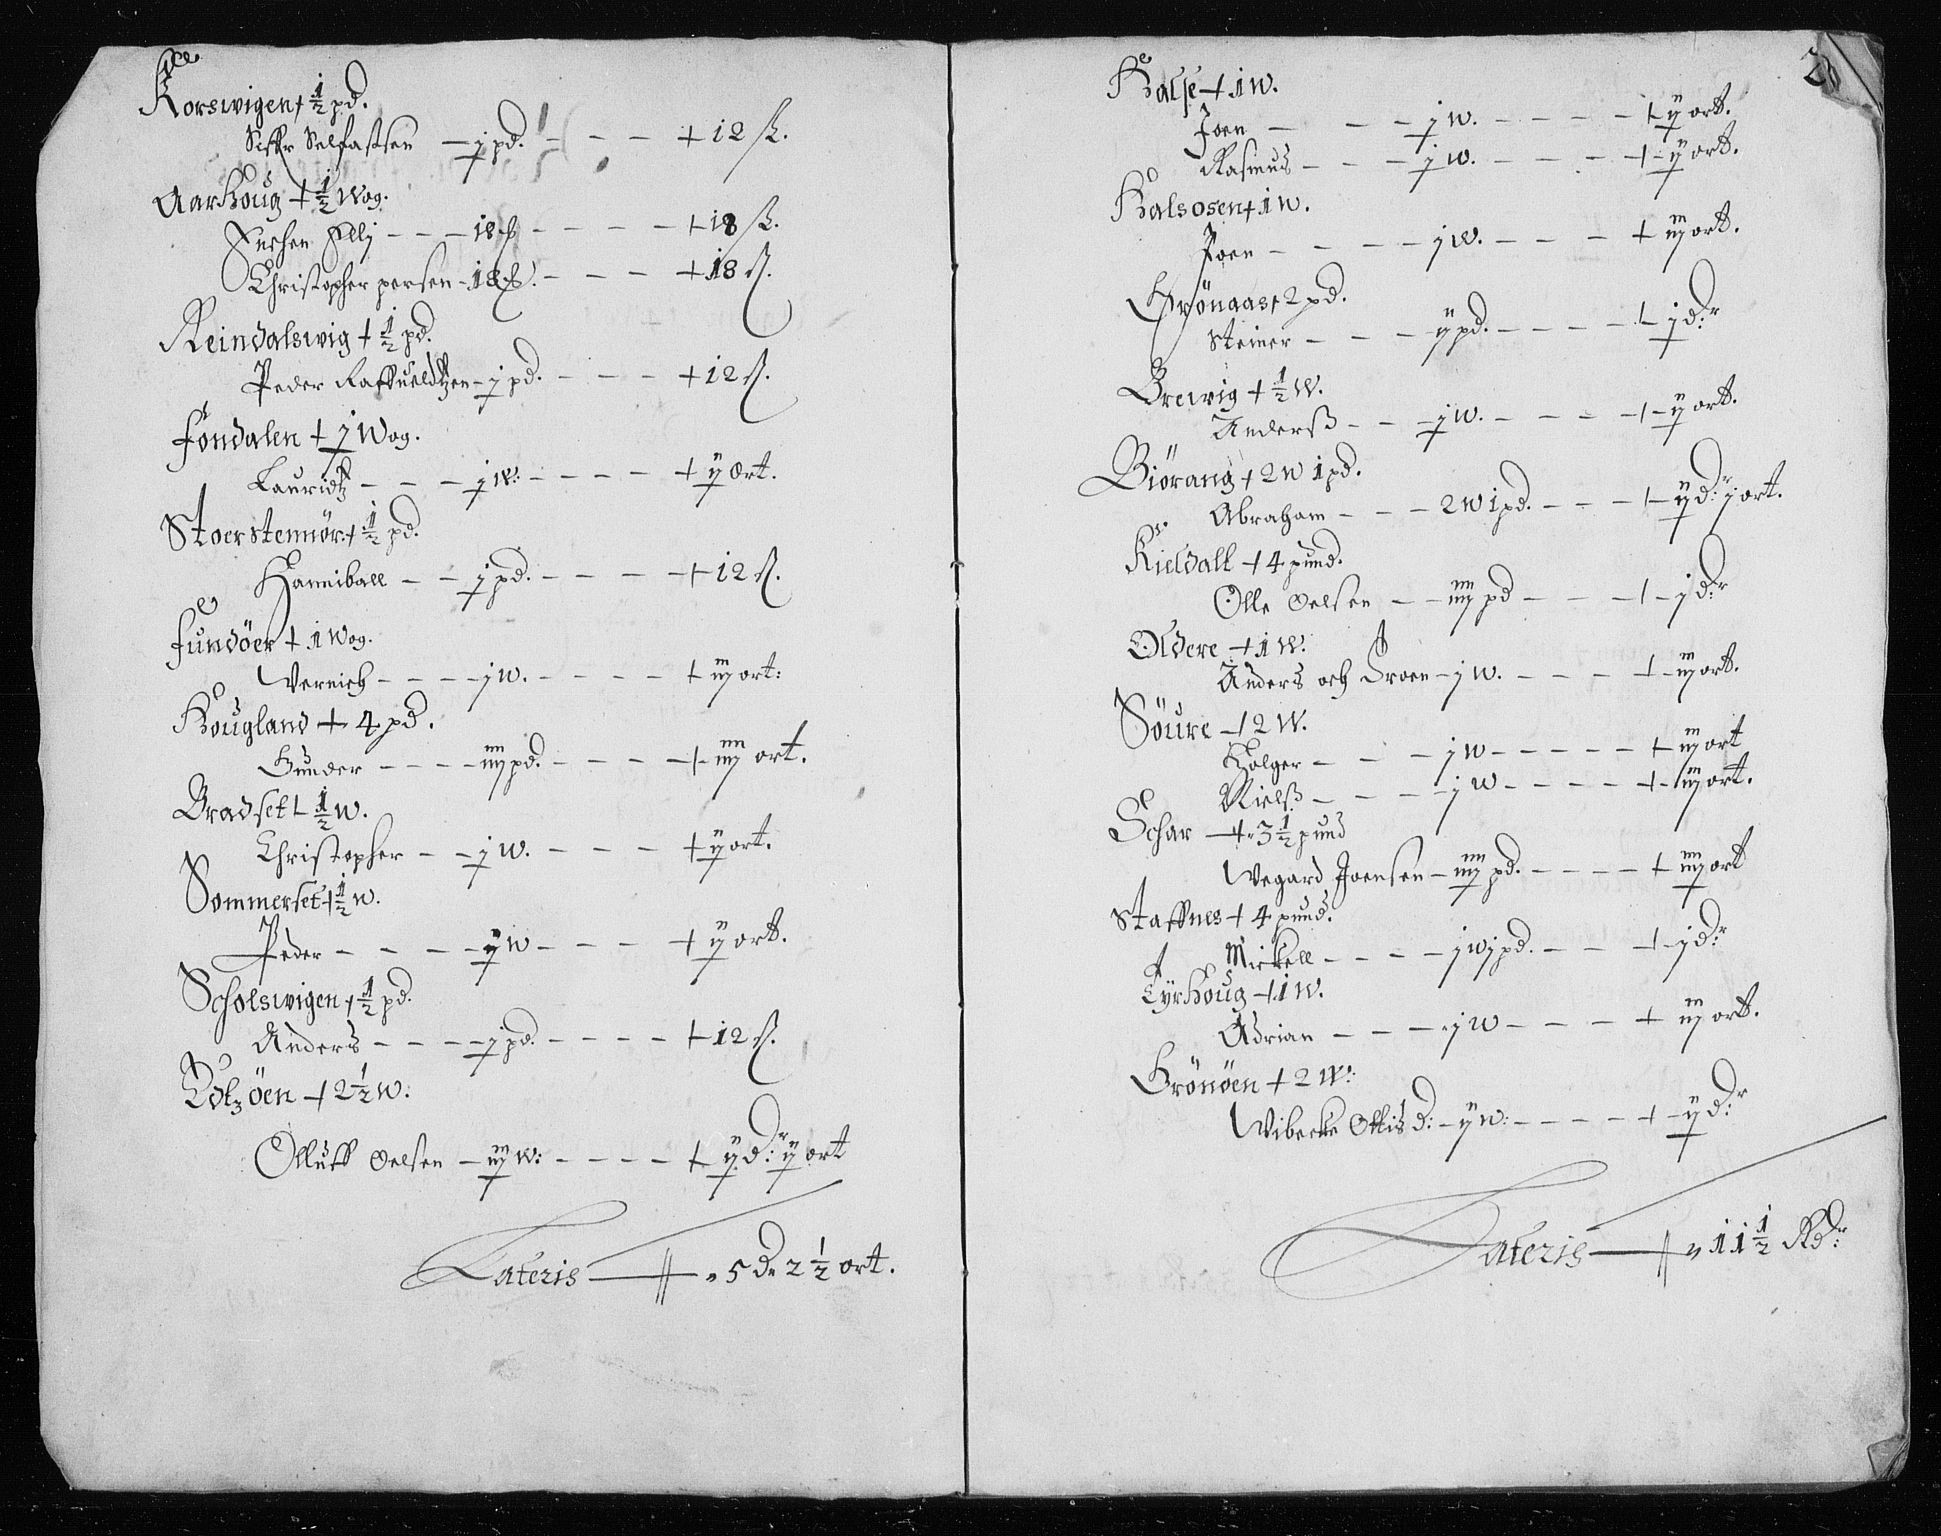 Korswigen + ½ pd.
Siffr Selfastsen — j pd. — — — + 12 ſ.
Aarhoug + ½ Wog.
— — — 18 — — — — + 18 ſ.
Christopher persen - 18 — — — + 18 ſ.
Reindalswig + ½ pd.
Peder Raffueldtzen - j pd. — — — + 12 ſ.
Föndalen + j Wog.
Lauridtz — — — j W: — — — — + ij Ort.
Stoerstennör + ½ pd.
Hanniball — — j pd. — — — — + 12 ſ.
Fundöer + 1 Wog.
Wernich — — — — j W. — — — — + iij ort:
Hougland + 4 pd.
Gunder — — — — iiij pd. — — — — + iiij ort.
Bradset + ½ W.
Christopher — — j W. — — — — + ij ort.
Sommerset + ½ W.
Peder — — — — ij W — — — — + ij ort.
Scholswigen + ½ pd.
Anders — — — — j pd. — — — — + 12 ſ.
öen + 2½ W:
Olluff Oelsen — iij W: — — — — + ij d:r ij ort
Lateris — 5 D 2½ ort.
28
Halse + 1 W.
Joen — — — j W. — — — — + ij ort.
Rasmus — — — j W. — — — — + ij ort.
Halsosen + 1 W.
Joen — — — — j W. — — — + iij ort.
Grönaas + 2 pd.
Steiner — — — ij pd. — — — — + j d:r
Brewig + ½ W.
Anderss — — j W. — — — — + ij ort.
Biörang + 2 W 1 pd.
Abraham — — — 2 W 1 pd. — — — + ij d:r j ort.
Kieldall + 4 pund.
Olle Oelsen — — iiij pd — — — + j d:r
Oldere + 1 W.
Anders och Troen - j W. — — — + iij ort.
Söure + 2 W.
Holger — — — j W — — — — — + iij ort
Nielss — — — — j W — — — — + iij ort.
Schar + 3½ pund
Wegard Joensen — iiij pd. — — — — + iiij ort
Staffnes + 4 pund.
Mickell — — — — j W j pd. — — — + j d:r
Tyrhoug + 1 W.
Adrian — — — — j W — — — — + iij ort.
Grönöen + 2 W:
Wibecke Ottis D: — ij W: — — — — + ij d:r
Lateris — 11½ Rd:r